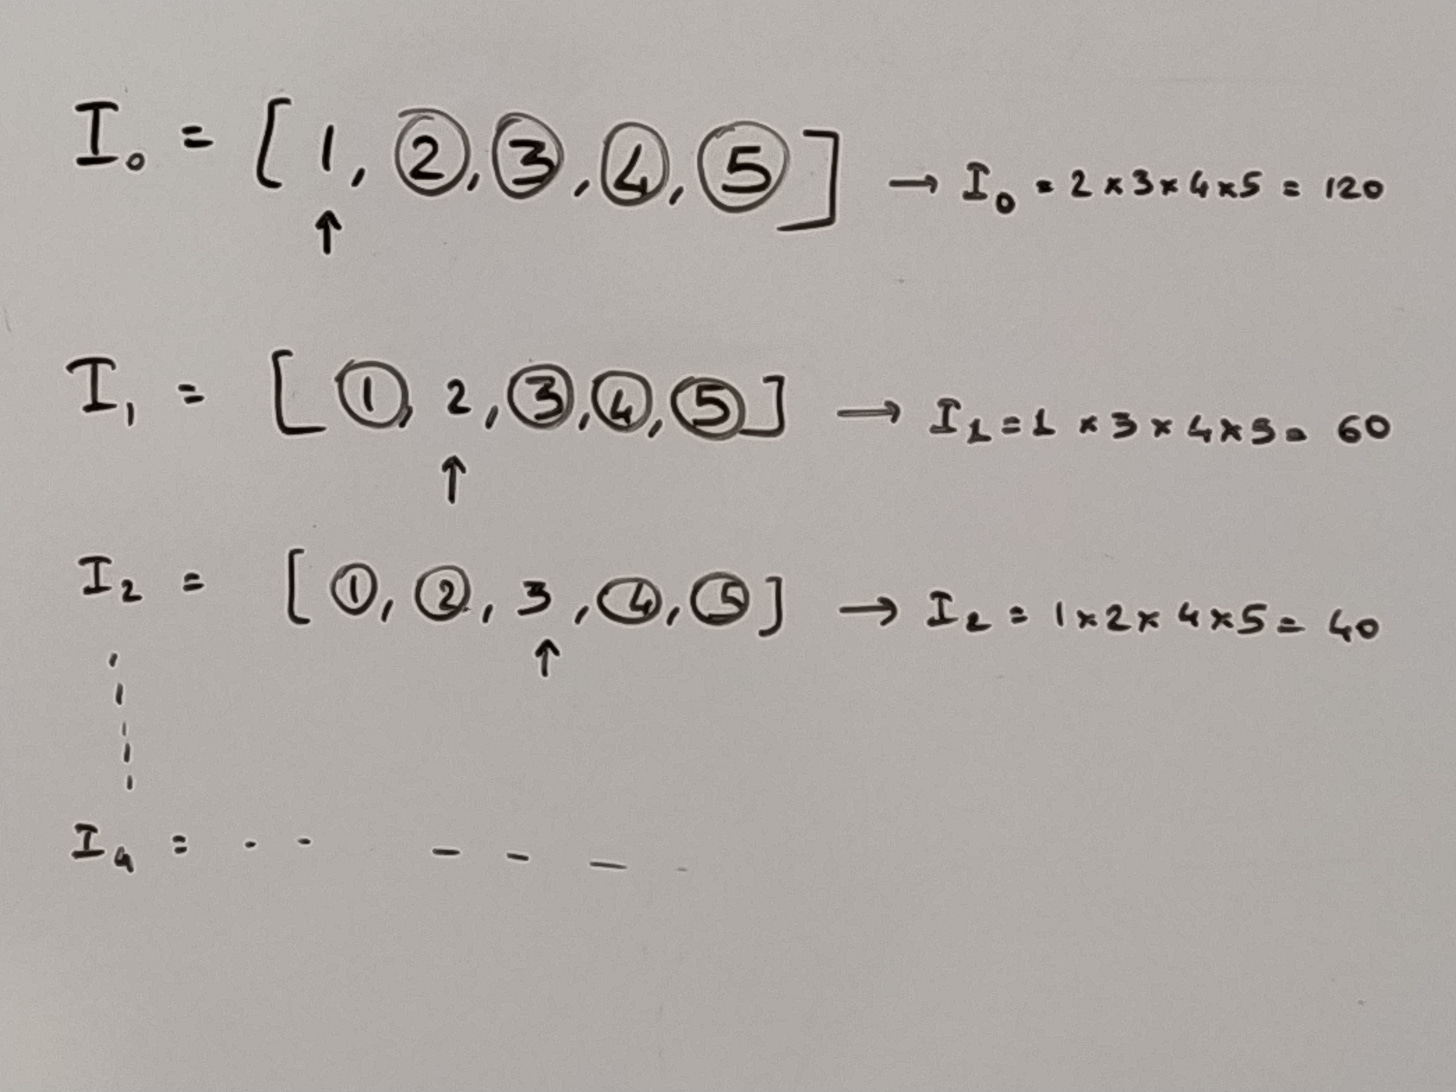 I₀ = [ 1, 2, 3, 4, 5 ] → I₀ = 2 × 3 × 4 × 5 = 120
↑
I₁ = [ 1, 2, 3, 4, 5 ] → I₁ = 1 × 3 × 4 × 5 = 60
↑
I₂ = [ 1, 2, 3, 4, 5 ] → I₂ = 1 × 2 × 4 × 5 = 40
↑
I₄ = . . _ _ _ .